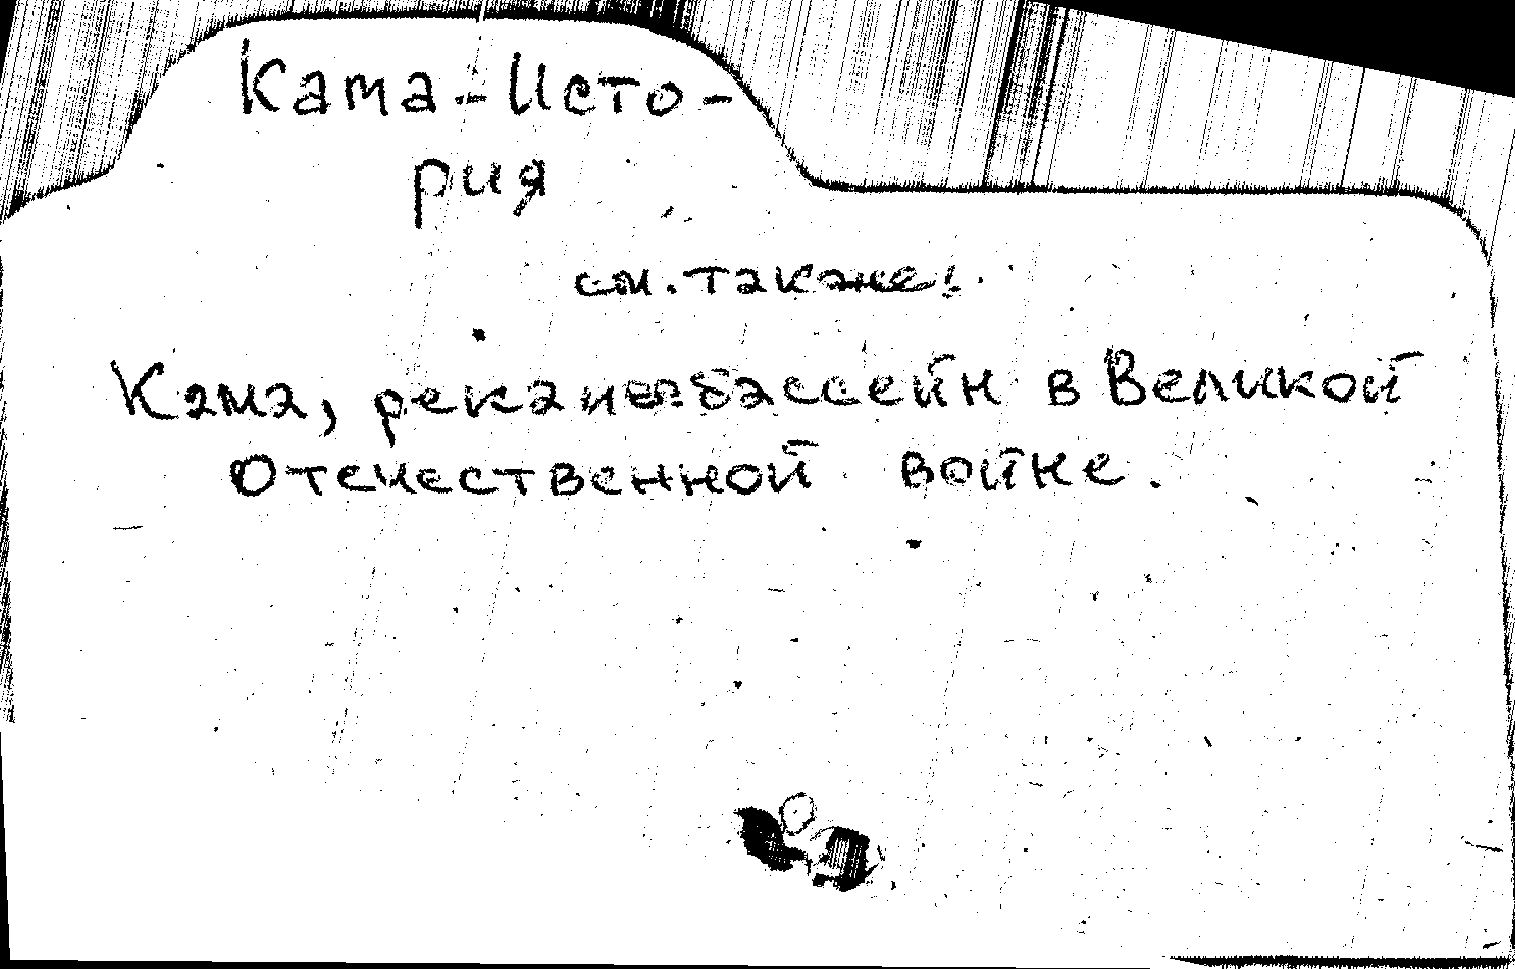 Кама - Исто-
рия
см. также:
Кама, река и ее бассейн в Великой
Отечественной войне.